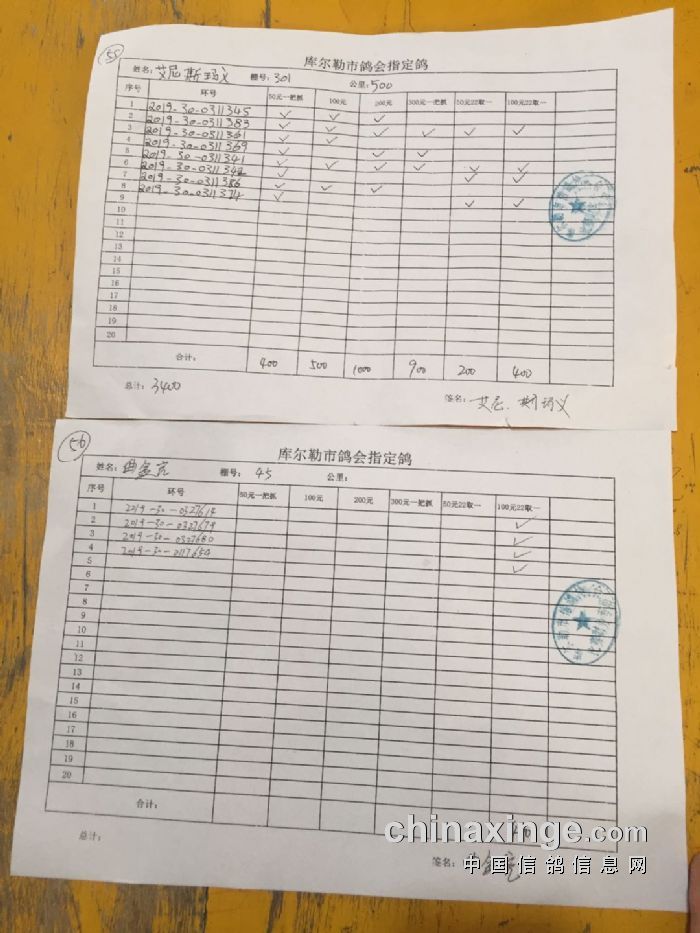 55
库尔勒市鸽会指定鸽
姓名: 艾尼斯玛义 棚号: 301 公里: 500
序号 环号 50元一把抓 100元 200元 300元一把抓 50元22取一 100元22取一
1 2019-30-0311345 ✓ ✓ ✓
2 2019-30-0311383 ✓ ✓ ✓ ✓ ✓ ✓
3 2019-30-0311361 ✓ ✓
4 2019-30-0311369 ✓ ✓ ✓
5 2019-30-0311341 ✓ ✓ ✓ ✓ ✓ ✓
6 2019-30-0311342 ✓ ✓ ✓
7 2019-30-0311386 ✓ ✓ ✓
8 2019-30-0311374 ✓ ✓ ✓
9
10
11
12
13
14
15
16
17
18
19
20
合计: 400 500 1000 900 200 400
总计: 3400 签名: 艾尼.斯玛义
56
库尔勒市鸽会指定鸽
姓名: 曲金亮 棚号: 45 公里:
序号 环号 50元一把抓 100元 200元 300元一把抓 50元22取一 100元22取一
1 2019-30-0327614 ✓
2 2019-30-0327679 ✓
3 2019-30-0327680 ✓
4 2019-30-0117654 ✓
5
6
7
8
9
10
11
12
13
14
15
16
17
18
19
20
合计: 400
总计:
签名: 曲金亮
chinaxinge.com
中国信鸽信息网